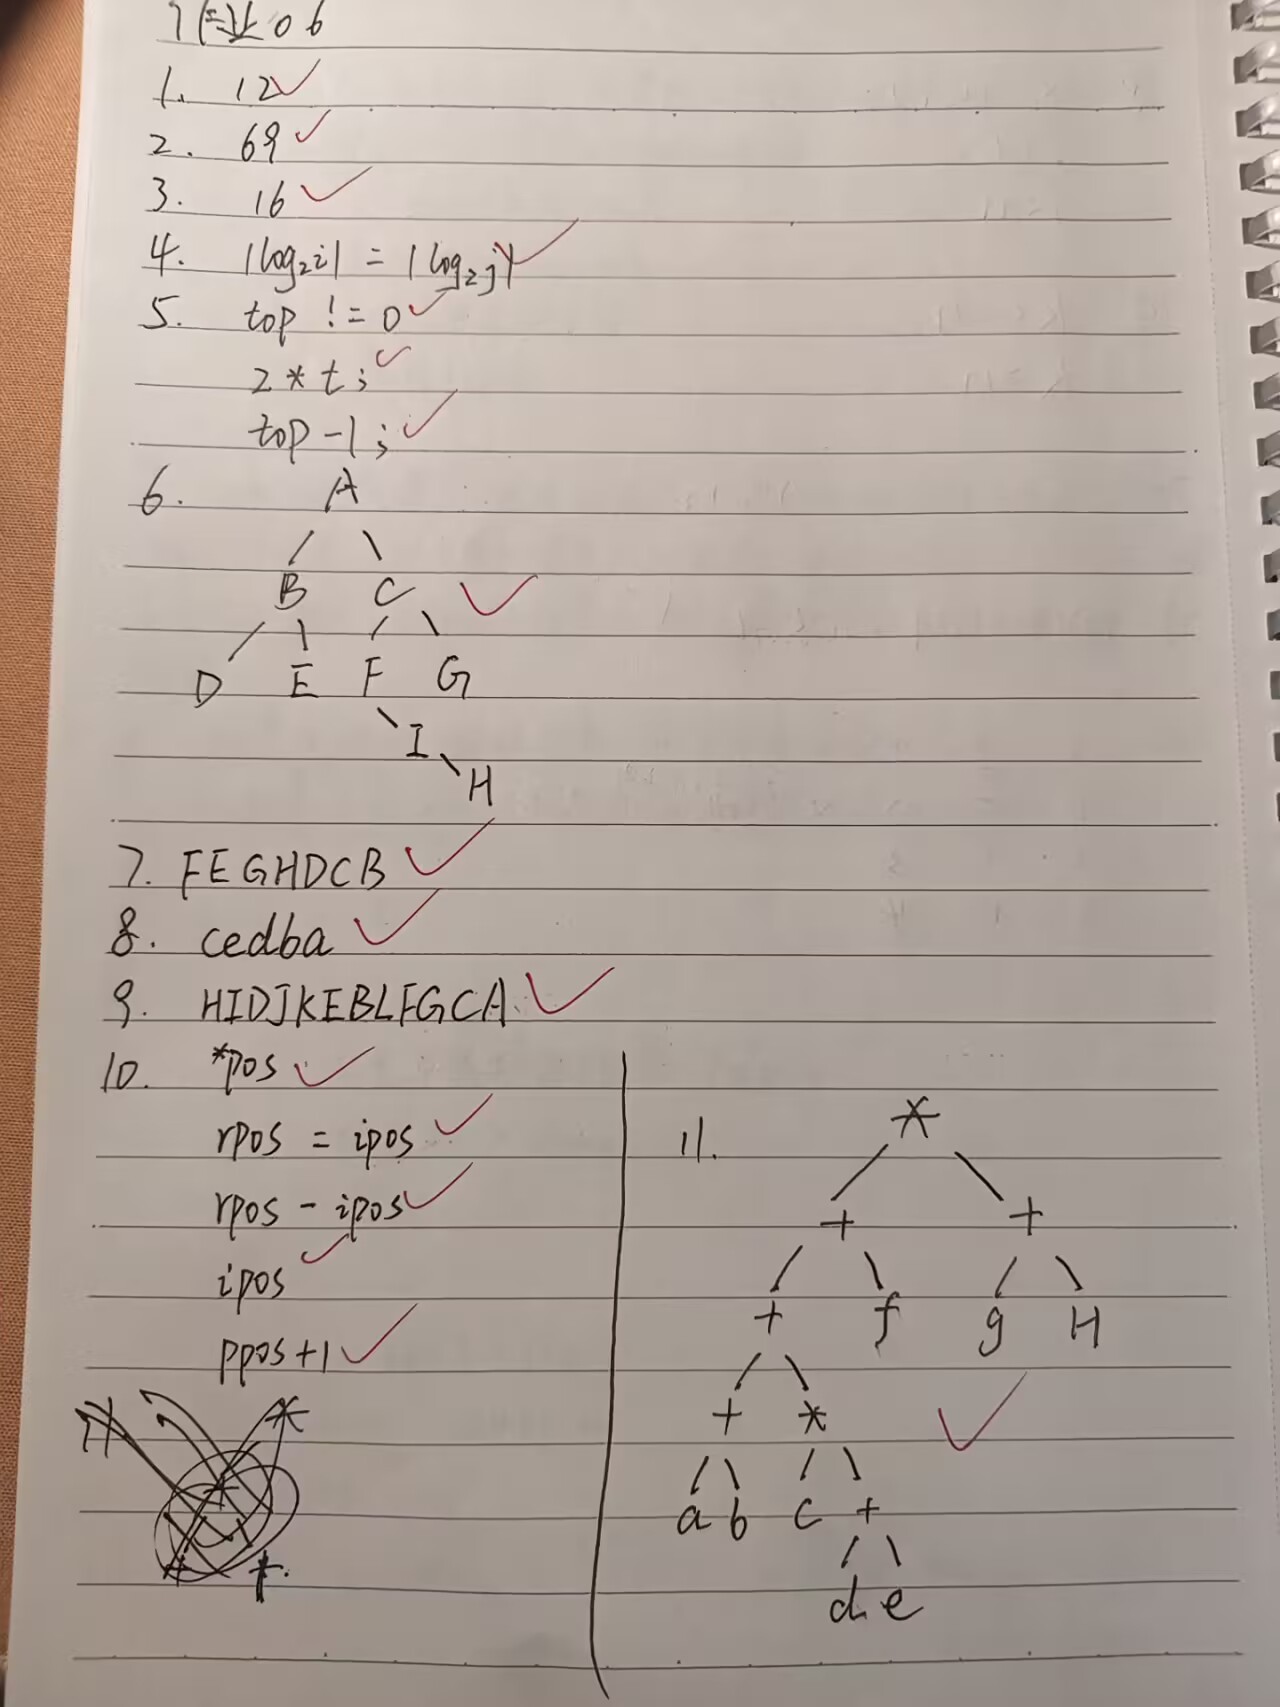 作业06
1. 12
2. 69
3. 16
4. |log₂i| = |log₂j|
5. top != 0
2*t;
top-1;
6. A
B C
D E F G
I
H
7. FEGHDCB
8. cedba
9. HIDJKEBLFGCA
10. *pos
rpos = ipos
rpos - ipos
ipos
ppos+1
11. *
+ +
+ f g H
+ *
a b c +
d e